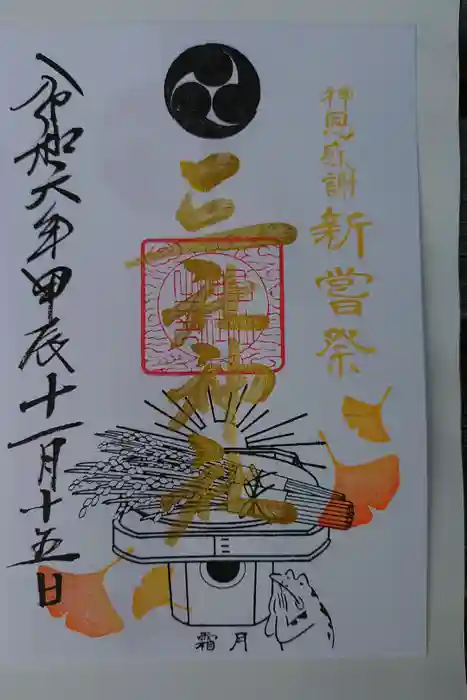 神恩感謝 新嘗祭
三社神社
令和六年甲辰十一月十五日
霜月